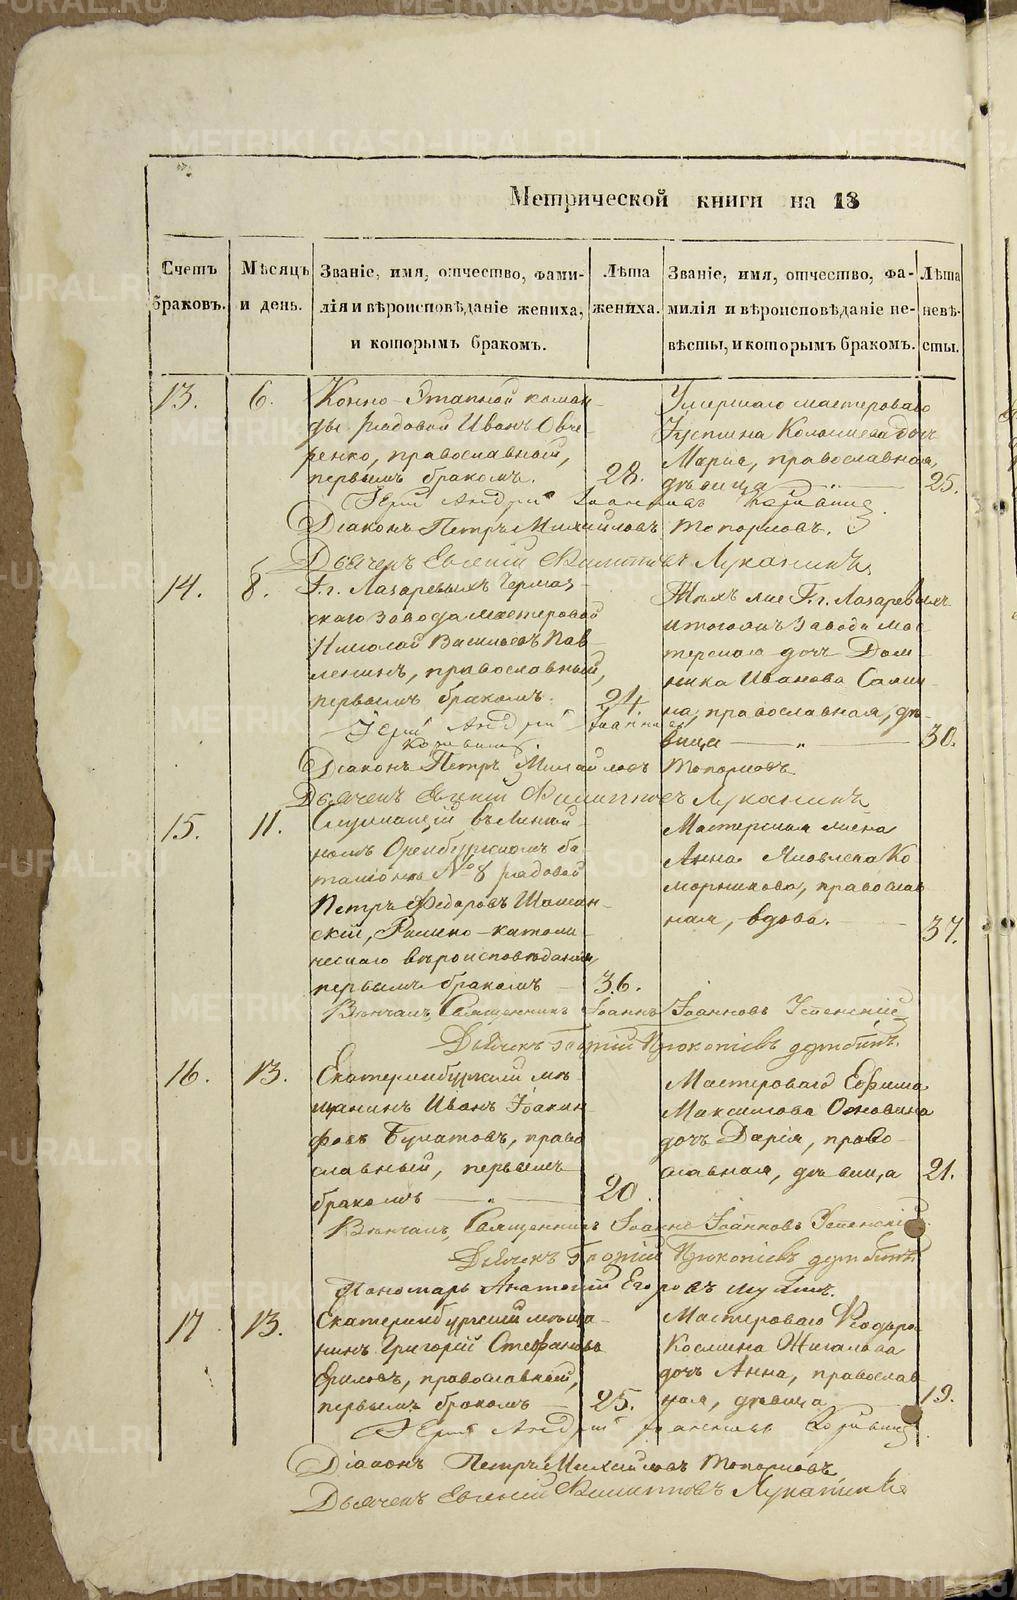 Метрической книги на 18
Счетъ браковъ.
Мѣсяцъ и день.
Званіе, имя, отчество, фами-
лія и вѣроисповѣданіе жениха,
и которымъ бракомъ.
Лѣта жениха.
Званіе, имя, отчество, фа-
милія и вѣроисповѣданіе не-
вѣсты, и которымъ бракомъ.
Лѣта невѣ-
сты.
13.
6.
Конно-Этапной коман-
ды рядовой Иванъ Овче-
ренко, православный,
первымъ бракомъ.
28.
Умершаго мастероваго
дочь
Марія, православная,
дѣвица
25.
Іерей Андрей Іоанновъ
Діаконъ Петръ Михайловъ Топорковъ.
Дьячекъ Евгеній Филипповъ Луканинъ
14.
8.
Г. г. Лазаревыхъ Чермаз-
скаго завода мастеровой
Николай Васильевъ Пав-
ленинъ, православный,
первымъ бракомъ.
24.
Тѣхъ же Г. г. Лазаревыхъ
и того жъ завода мас-
терскаго дочь Дом-
ника Иванова
православная, дѣ-
вица
30.
Іерей Андрей Іоанновъ
Діаконъ Петръ Михайловъ Топорковъ
Дьячекъ Евгеній Филипповъ Луканинъ
15.
11.
Служащій въ Линей-
номъ Оренбургскомъ ба-
таліонѣ № 8 рядовой
Петръ Федоровъ Шаман-
скій, Римско-католи-
ческаго вѣроисповѣданія
первымъ бракомъ
36.
Мастерская жена
Анна Яковлева Ко
морникова, православ
ная, вдова.
37.
Вѣнчалъ Священникъ Іоаннъ Іоанновъ Успенскій
Дьячекъ Георгій Прокопіевъ
16.
13.
Екатеринбургскій мѣ-
щанинъ Иванъ Іоаким
фовъ Булатовъ, право
славный, первымъ
бракомъ
20.
Мастероваго Ефима
Максимова
дочь Дарія, право-
славная, дѣвица
21.
Вѣнчалъ Священникъ Іоаннъ Іоанновъ Успенскій
Дьячекъ Георгій Прокопіевъ
Пономарь Анатолій Егоровъ
17
13.
Екатеринбургскій мѣща-
нинъ Григорій Стефановъ
православный,
первымъ бракомъ
25.
Мастероваго Феодора
Косьмина Жигалова
дочь Анна, православ
ная, дѣвица
19.
Іерей Андрей Іоанновъ
Діаконъ Петръ Михайловъ Топорковъ
Дьячекъ Евгеній Филипповъ Луканинъ
METRIKI.GASO-URAL.RU